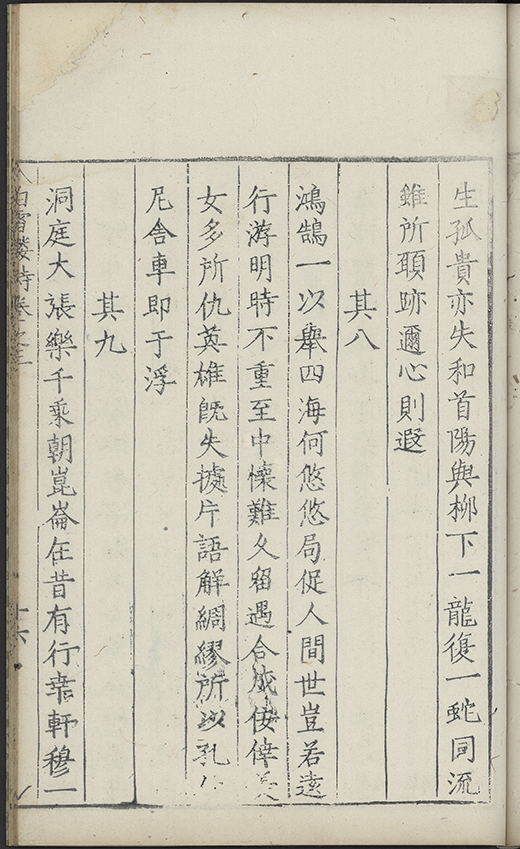 生孤貴亦失和首陽與栁下一龍復一蛇同流
雖所頤跡邇心則遐
其八
鴻鵠一以舉四海何悠悠局促人間世豈若遠
行游明時不重至中懷難久留遇合成佞倖
女多所仇英雄旣失據片語解綢繆所以乳
尼舍車即于浮
其九
洞庭大張樂千乘朝崑崙在昔有行幸軒穆一
白雪樓詩卷之三
十六